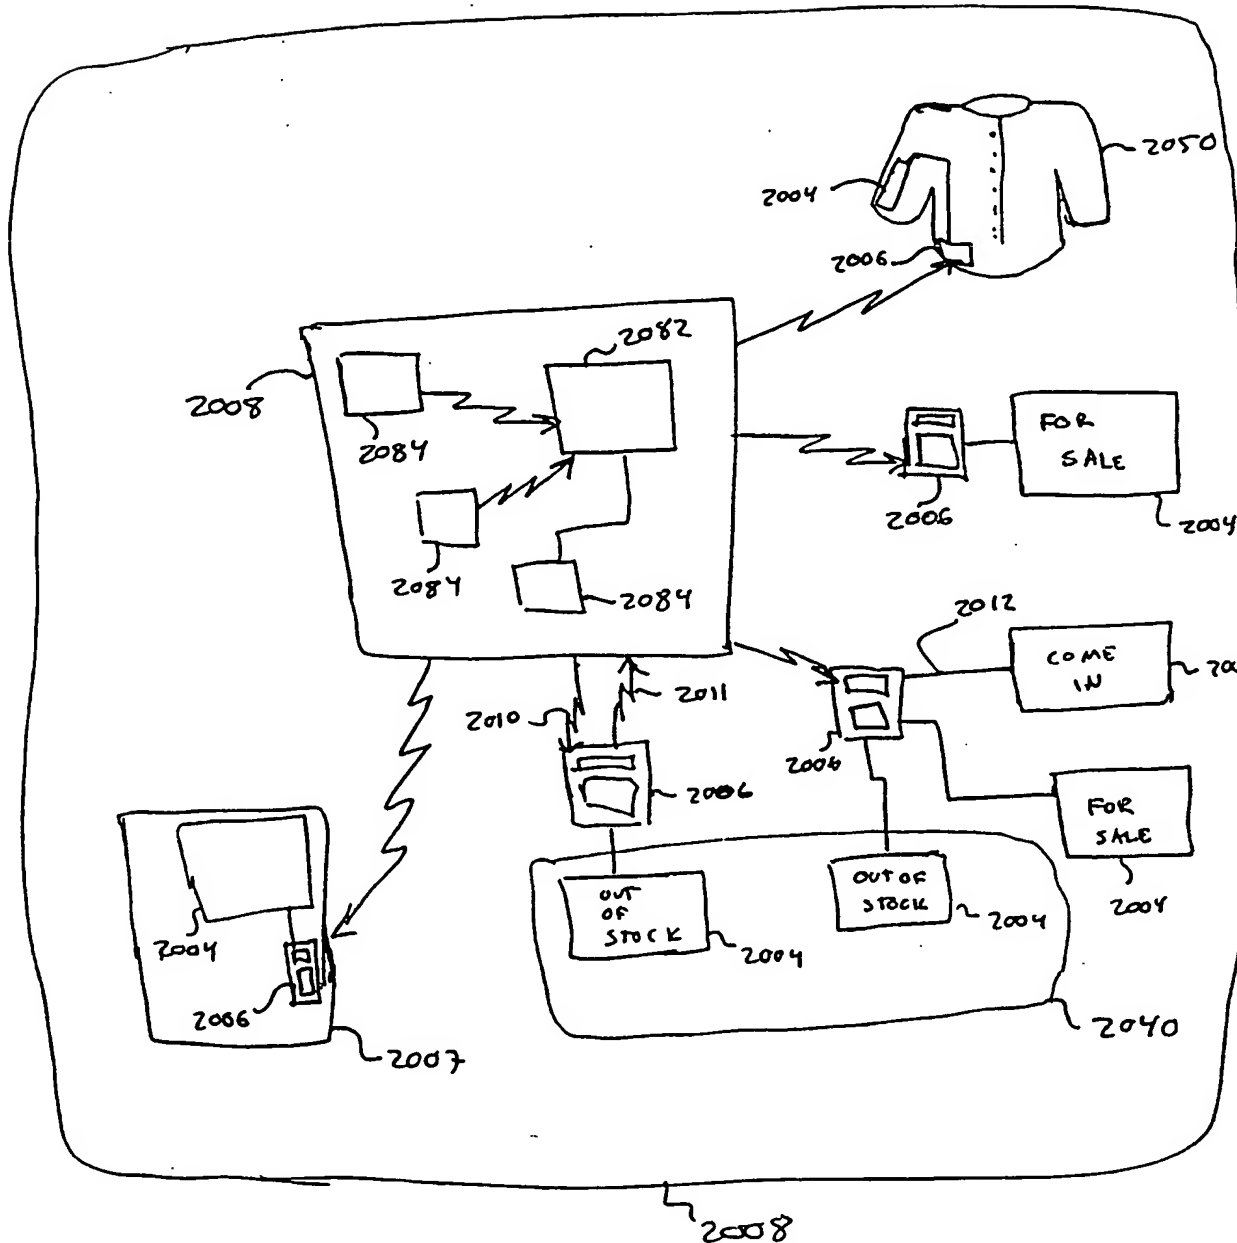 2050
2004
2006
2082
2008
2084
FOR
SALE
2006
2004
2084
2084
2012
COME
IN
2010
2011
2006
2006
FOR
SALE
2004
OUT
OF
STOCK
2004
OUT OF
STOCK
2004
2004
2006
2007
2040
2008